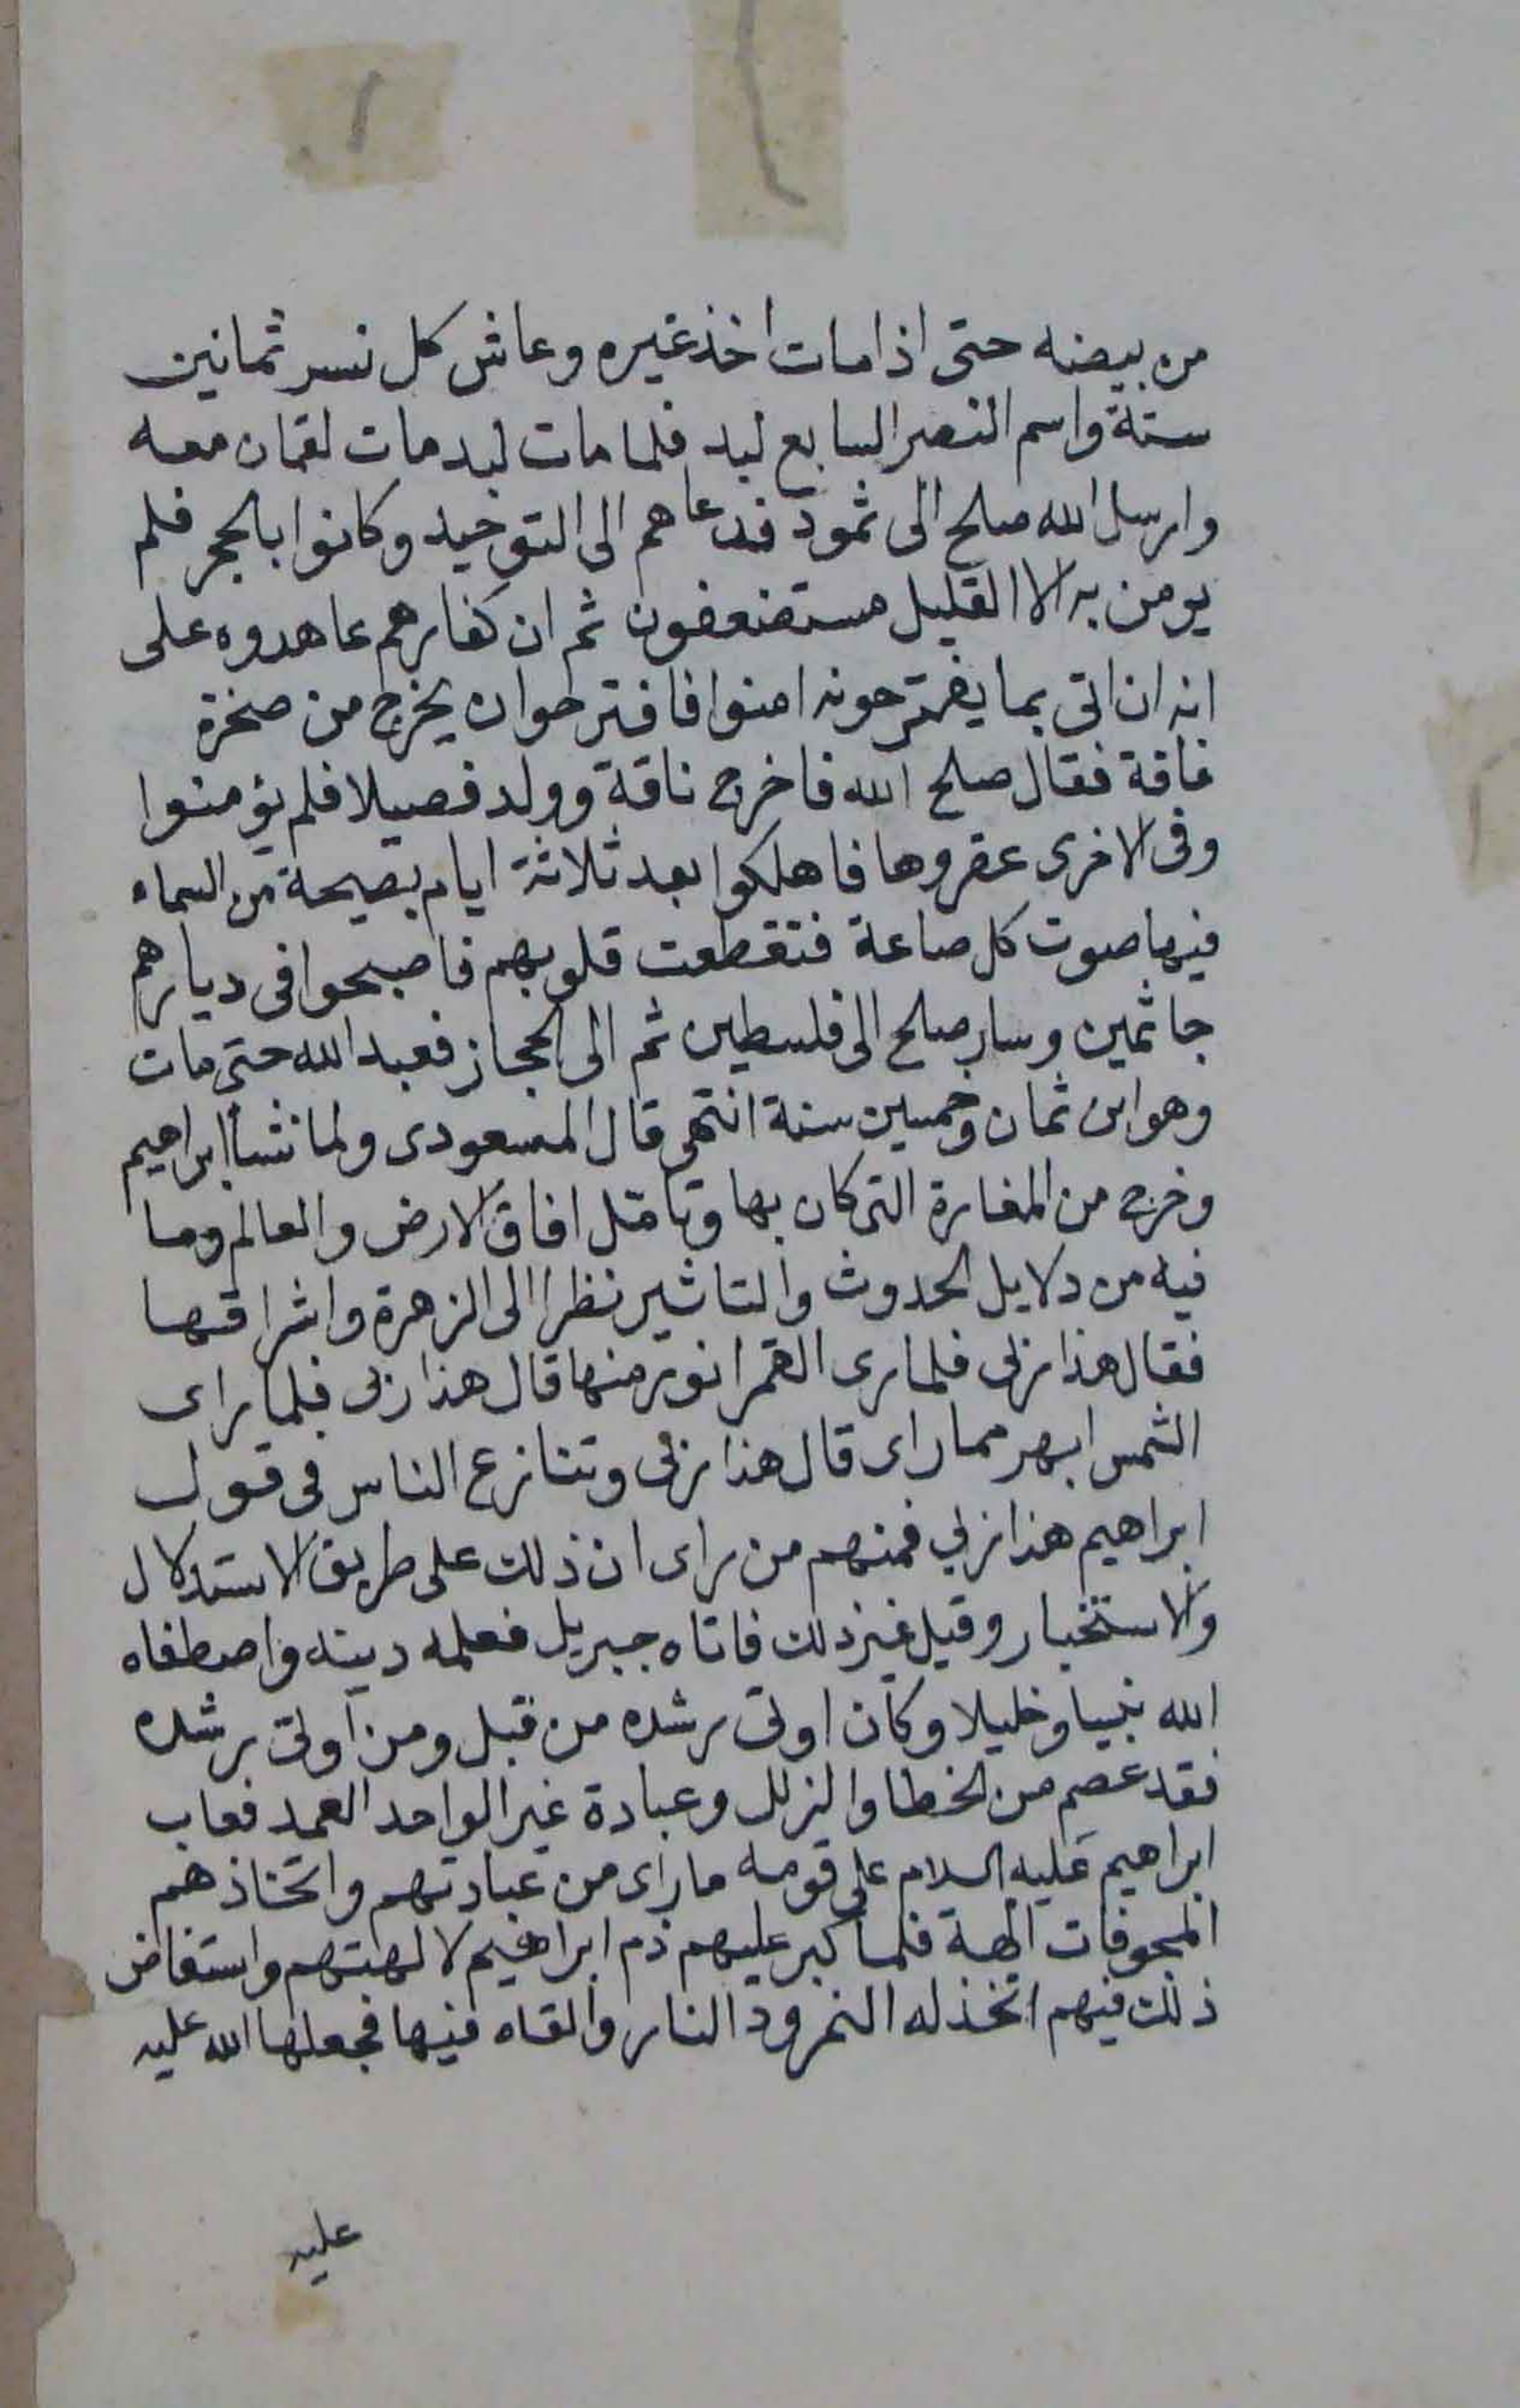 من بيضه حتى اذا مات اخذ غيره وعاش كل نسر ثمانين
ستة واسم النصر السابع لبد فلما مات لبد مات لقمان معه
وارسل الله صلح الى ثمود فدعاهم الى التوحيد وكانوا بالحجر فلم
يومن به الا القليل مستضعفون ثم ان كفارهم عاهدوه على
انه ان اتى بما يقترحونه امنوا فاقترحوا ان يخرج من صخرة
ناقة فقال صلح الله فاخرج ناقة وولد فصيلا فلم يؤمنوا
وفى الاخرى عقروها فاهلكوا بعد ثلاثة ايام بصيحة من السماء
فيها صوت كل صاعة فتقطعت قلوبهم فاصبحوا فى ديارهم
جاثمين وسار صلح الى فلسطين ثم الى الحجاز فعبد الله حتى مات
وهو ابن ثمان وخمسين سنة انتهى قال المسعودى ولما نشأ ابراهيم
وخرج من المغارة التى كان بها وتامل افاق الارض والعالم وما
فيه من دلايل الحدوث والتاثير نظر الى الزهرة واشراقها
فقال هذا ربى فلما رى القمر انور منها قال هذا ربى فلما راى
الشمس ابهر مما راى قال هذا ربى وتنازع الناس فى قول
ابراهيم هذا ربي فمنهم من راى ان ذلك على طريق الاستدلال
والاستخبار وقيل غير ذلك فاتاه جبريل فعلمه دينه واصطفاه
الله نبيا وخليلا وكان اوتى رشده من قبل ومن اوتى رشده
فقد عصم من الخطا والزلل وعبادة غير الواحد الصمد فعاب
ابراهيم عليه السلام على قومه ما راى من عبادتهم واتخاذهم
المجوفات الهة فلما كبر عليهم ذم ابراهيم لالهتهم واستفاض
ذلك فيهم اتخذ له النمرود النار والقاه فيها فجعلها الله عليه
عليه